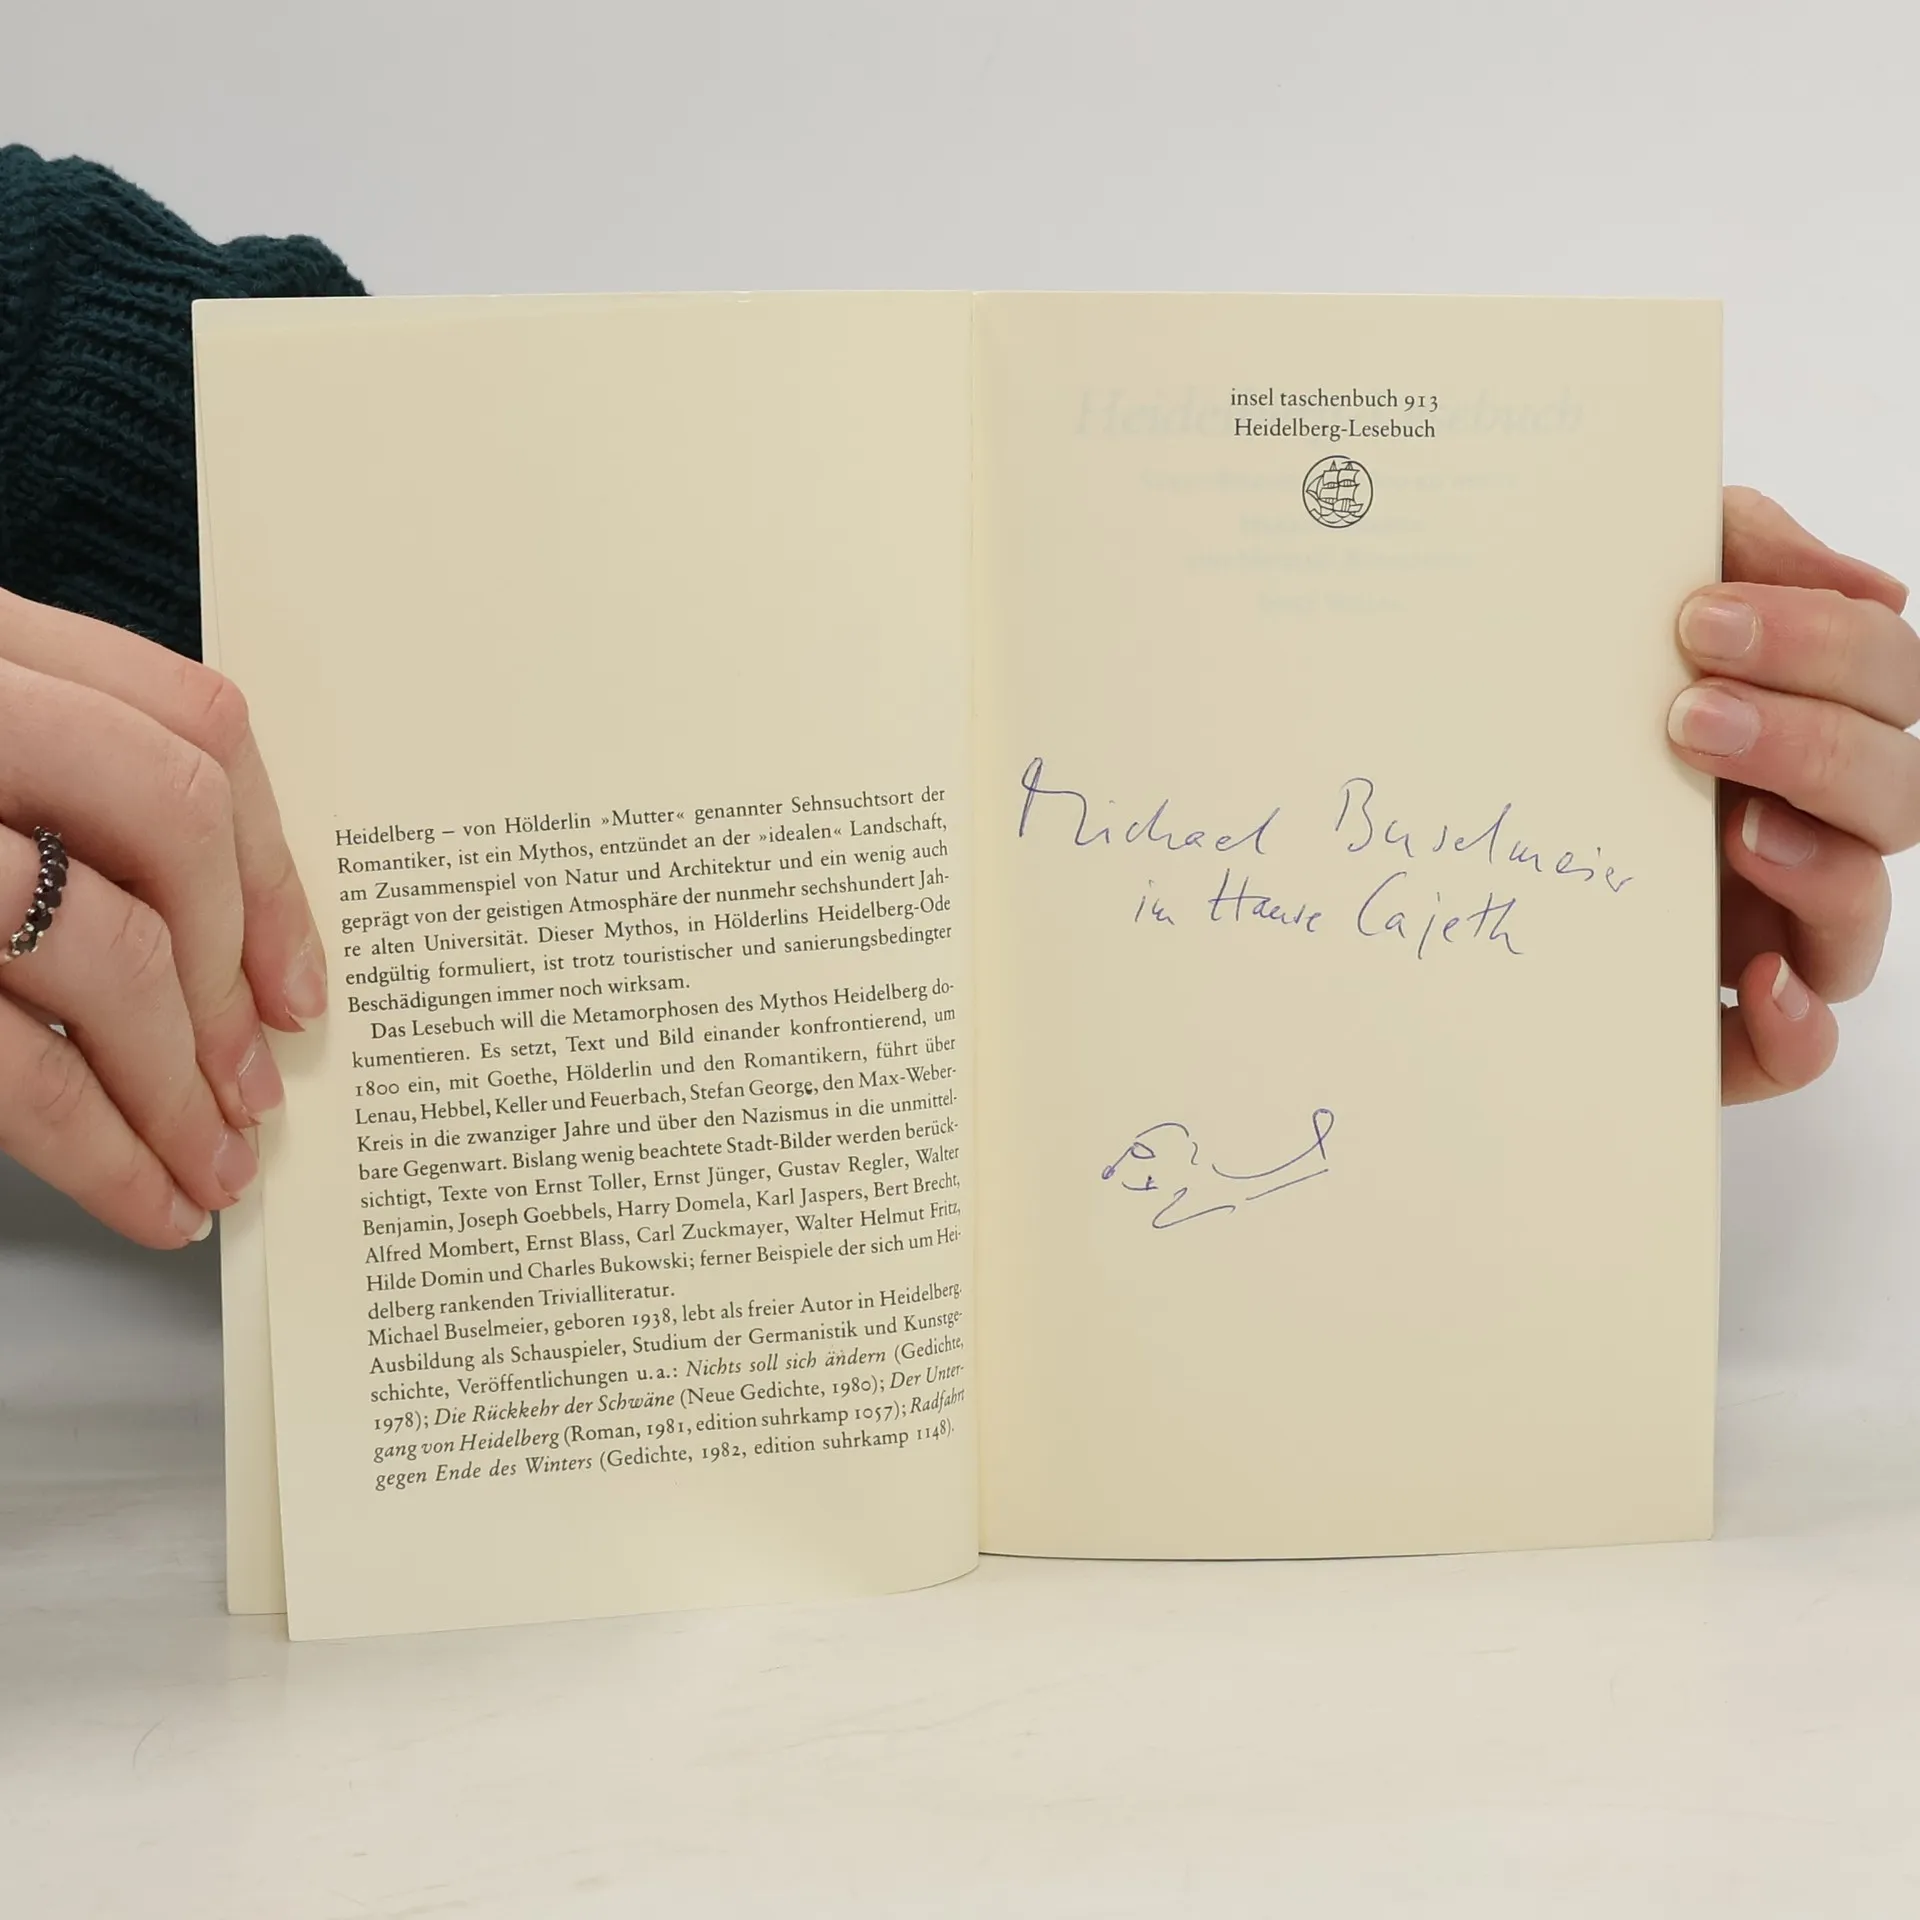 Heidelberg – von Hölderlin »Mutter« genannter Sehnsuchtsort der
Romantiker, ist ein Mythos, entzündet an der »idealen« Landschaft,
am Zusammenspiel von Natur und Architektur und ein wenig auch
geprägt von der geistigen Atmosphäre der nunmehr sechshundert Jah-
re alten Universität. Dieser Mythos, in Hölderlins Heidelberg-Ode
endgültig formuliert, ist trotz touristischer und sanierungsbedingter
Beschädigungen immer noch wirksam.
Das Lesebuch will die Metamorphosen des Mythos Heidelberg do-
kumentieren. Es setzt, Text und Bild einander konfrontierend, um
1800 ein, mit Goethe, Hölderlin und den Romantikern, führt über
Lenau, Hebbel, Keller und Feuerbach, Stefan George, den Max-Weber-
Kreis in die zwanziger Jahre und über den Nazismus in die unmittel-
bare Gegenwart. Bislang wenig beachtete Stadt-Bilder werden berück-
sichtigt, Texte von Ernst Toller, Ernst Jünger, Gustav Regler, Walter
Benjamin, Joseph Goebbels, Harry Domela, Karl Jaspers, Bert Brecht,
Alfred Mombert, Ernst Blass, Carl Zuckmayer, Walter Helmut Fritz,
Hilde Domin und Charles Bukowski; ferner Beispiele der sich um Hei-
delberg rankenden Trivialliteratur.
Michael Buselmeier, geboren 1938, lebt als freier Autor in Heidelberg.
Ausbildung als Schauspieler, Studium der Germanistik und Kunstge-
schichte, Veröffentlichungen u.a.: Nichts soll sich ändern (Gedichte,
1978); Die Rückkehr der Schwäne (Neue Gedichte, 1980); Der Unter-
gang von Heidelberg (Roman, 1981, edition suhrkamp 1057); Radfahrt
gegen Ende des Winters (Gedichte, 1982, edition suhrkamp 1148).
insel taschenbuch 913
Heidelberg-Lesebuch
Michael Buselmeier
im Hause Cajeth